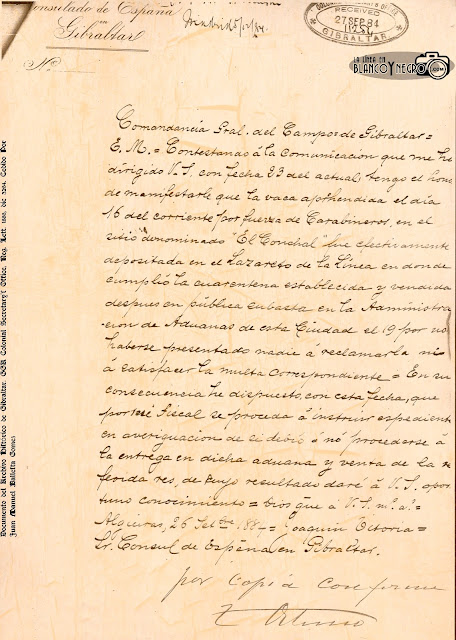 Consulado de España
en
Gibraltar
Nº
RECEIVED
27 SEP 84
GIBRALTAR
LA LÍNEA EN
BLANCO Y NEGRO
.COM
Comandancia Gral. del Campo de Gibraltar =
E. M. = Contestando á la comunicacion que me ha
dirigido V. S. con fecha 23 del actual tengo el honor
de manifestarle que la vaca aprehendida el dia
16 del corriente por fuerza de Carabineros, en el
sitio denominado "El Conchal" fue efectivamente
depositada en el Lazareto de la Línea en donde
cumplió la cuarentena establecida y vendida
despues en pública subasta en la Administra
cion de Aduanas de esta Ciudad el 19 por no
haberse presentado nadie á reclamarla ni
á satisfacer la multa correspondiente = En su
consecuencia he dispuesto, con esta fecha, que
por ese Fiscal se proceda á instruir expediente
en averiguacion de si debió ó no procederse á
la entrega en dicha aduana y venta de la re
ferida res, de cuyo resultado daré á V. S. opor
tuno conocimiento = Dios gue á V. S. m. a.
Algeciras, 26 Setbre 1884 = Joaquin Vitoria =
Sr. Consul de España en Gibraltar.
por copia conforme
Documento del Archivo Histórico de Gibraltar. GGR Colonial Secretary's Office. Reg. Lett. 1888. Nº 2594. Cedido Por
Juan Manuel Ballesta Gómez